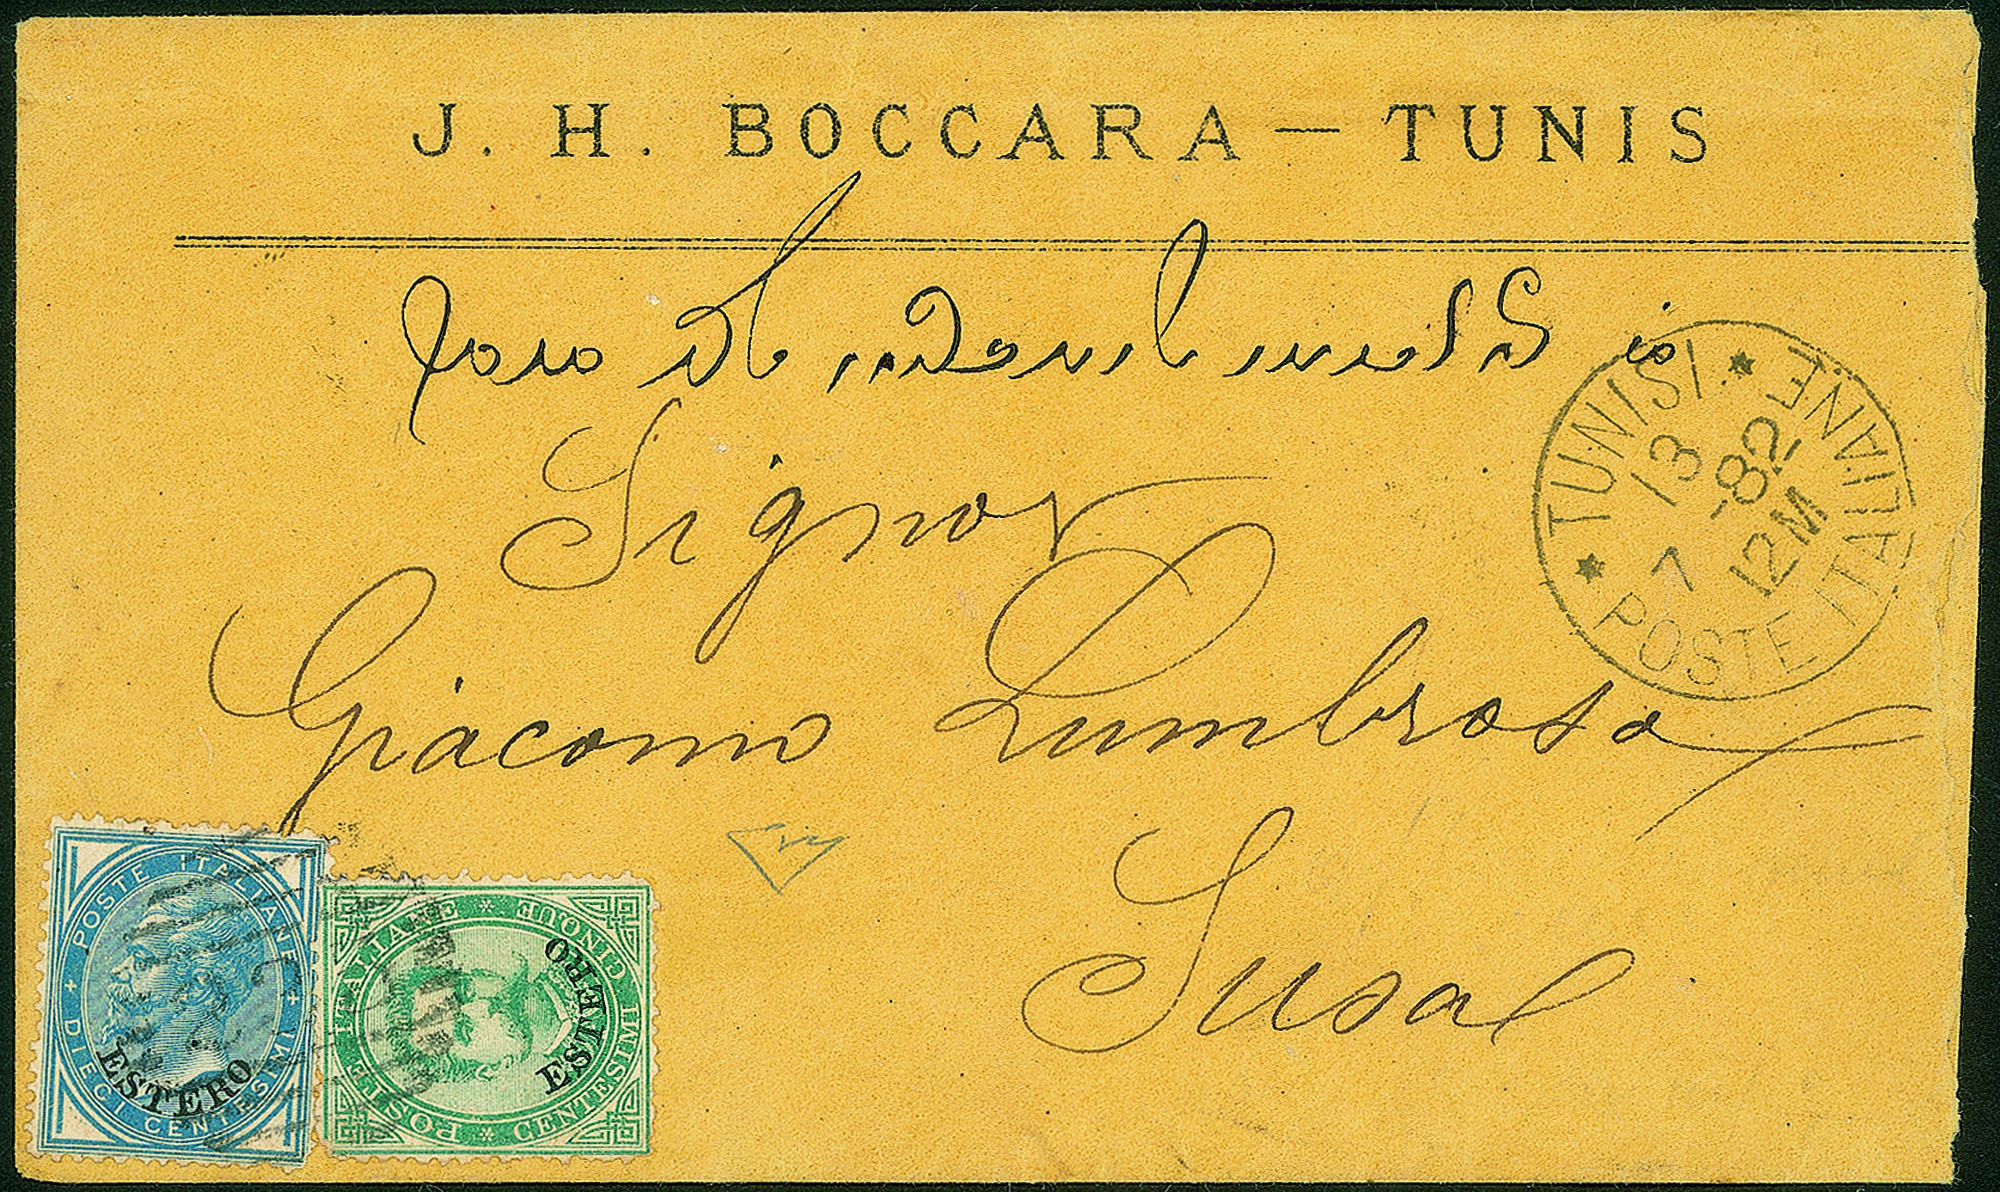 J. H. BOCCARA — TUNIS
Signor
Giacomo Lumbroso
Susa
TUNISI.
POSTE ITALIANE
13
7 -82
12M
POSTE ITALIANE
DIECI CENTESIMI
ESTERO
POSTE ITALIANE
CINQUE CENTESIMI
ESTERO